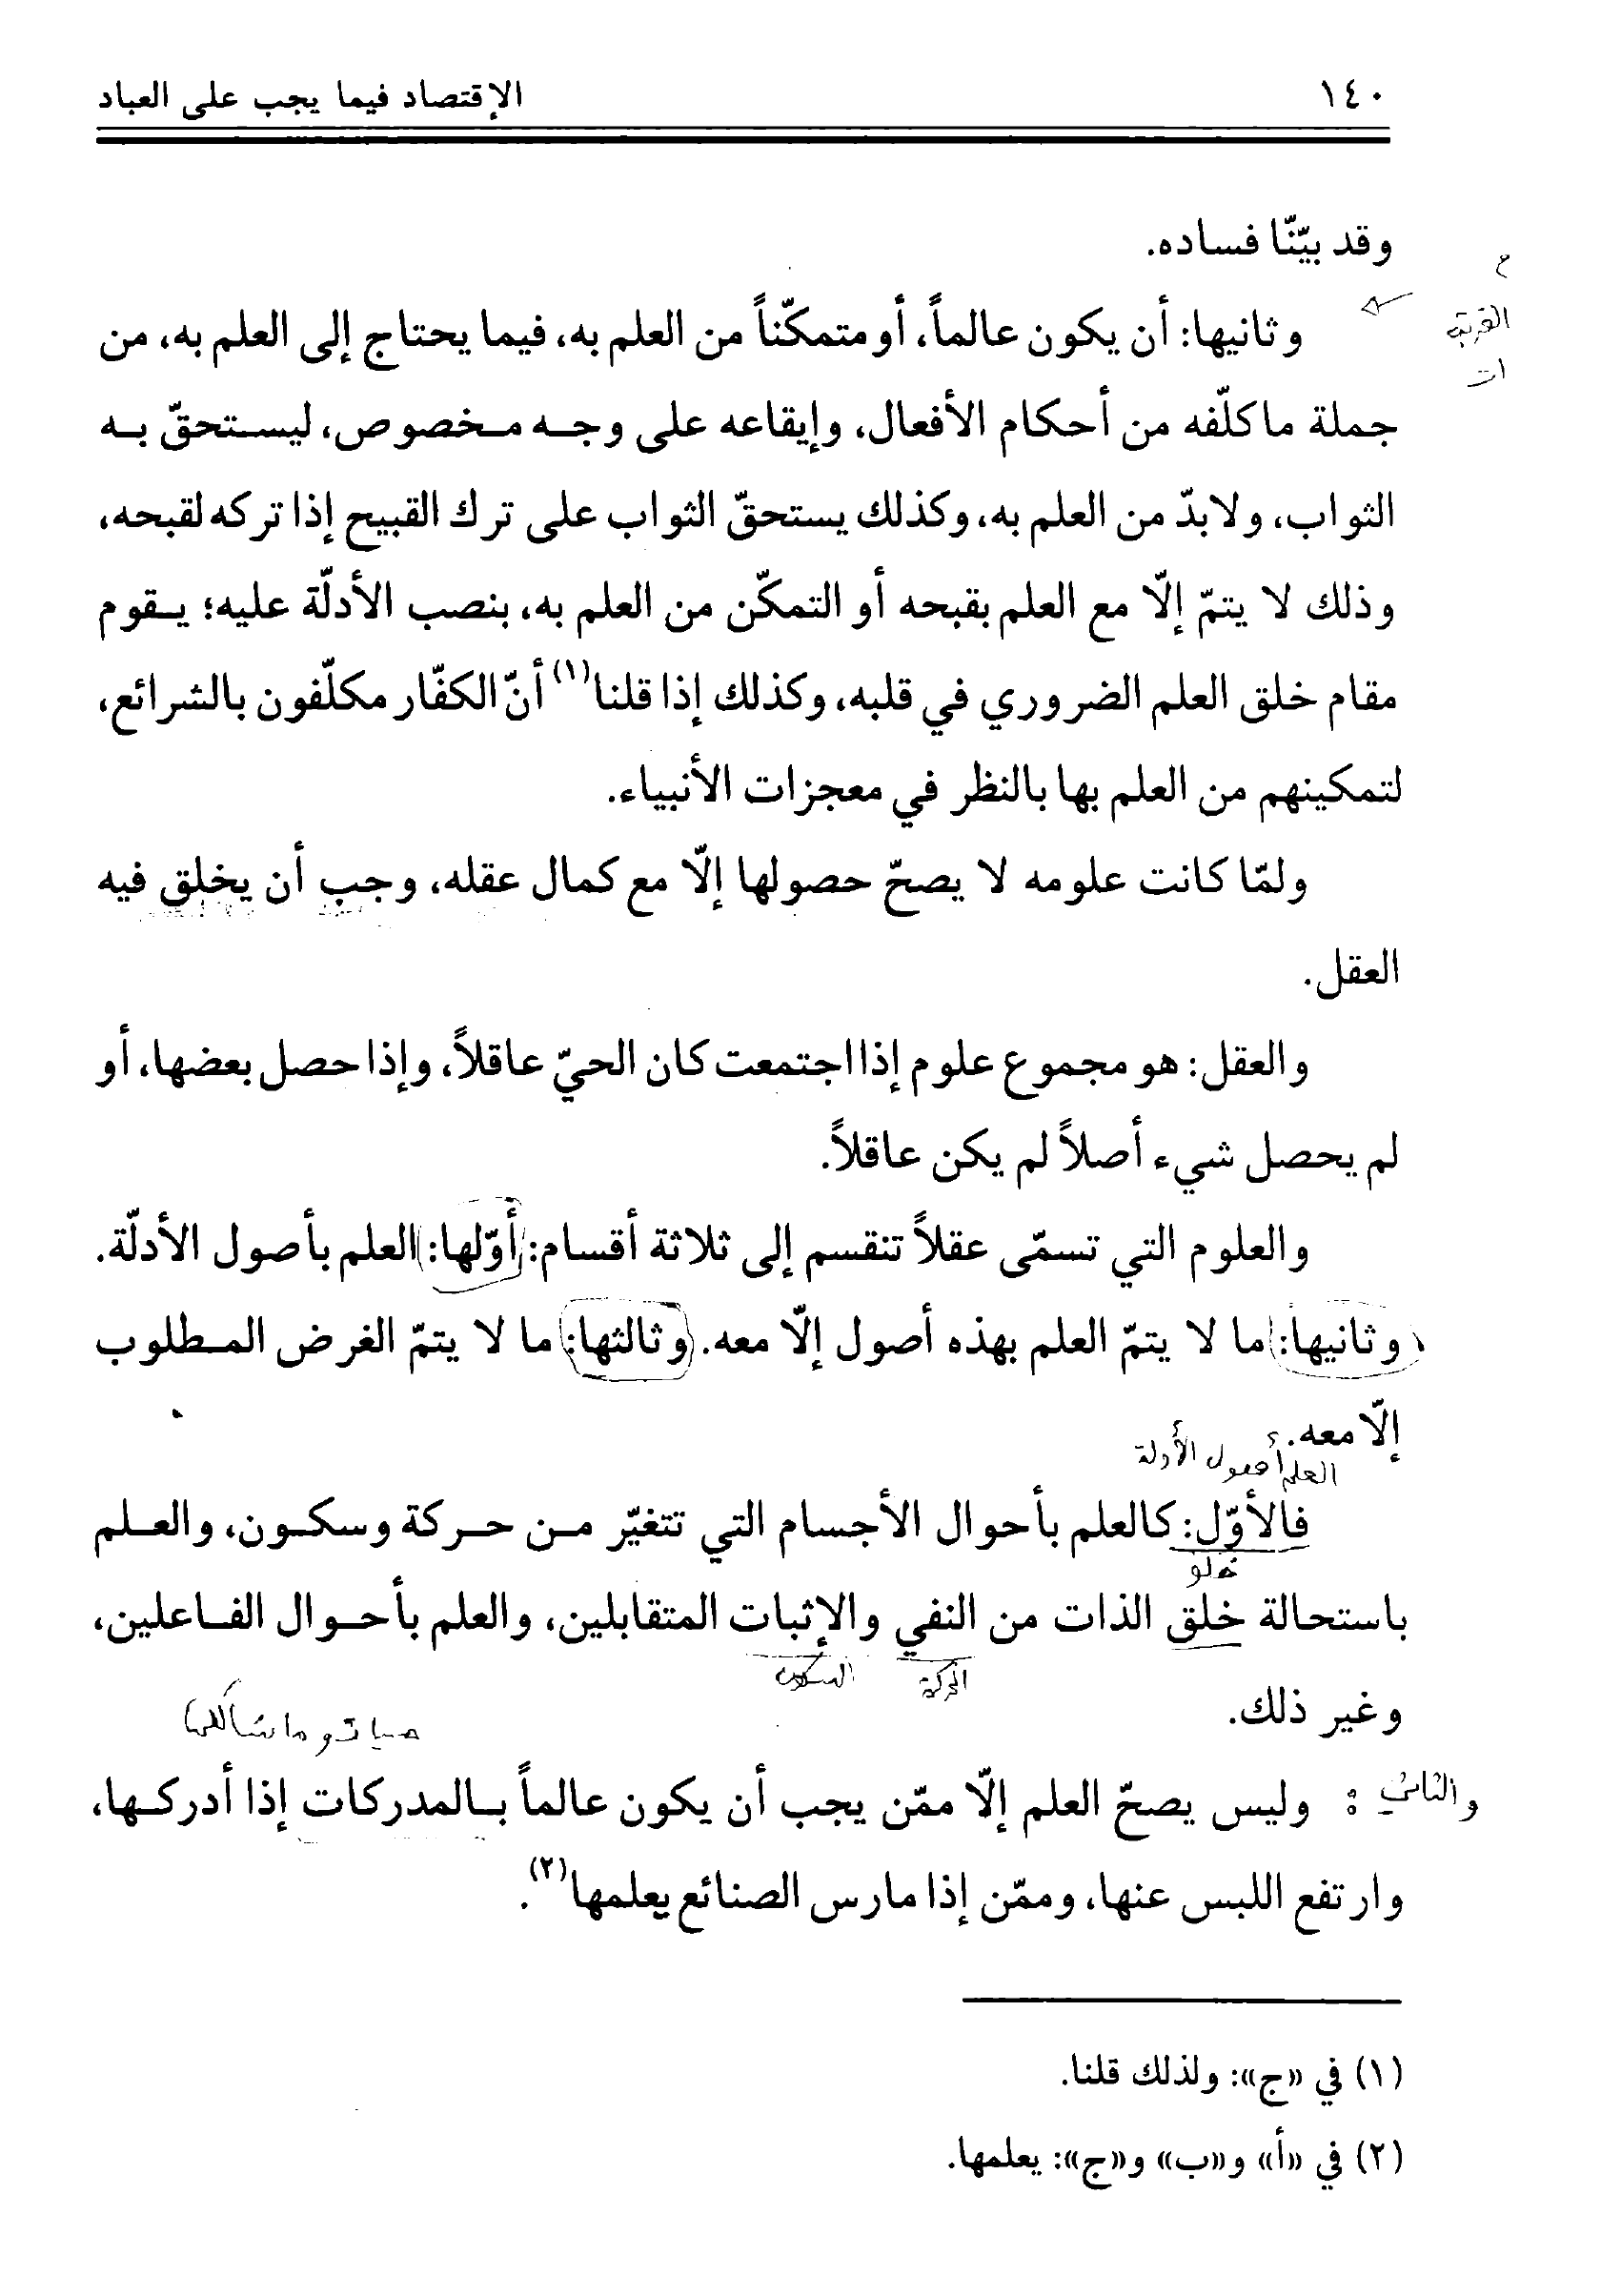 ١٤٠ الإقتصاد فيما يجب على العباد
وقد بيّنّا فساده.
وثانيها: أن يكون عالماً، أو متمكّناً من العلم به، فيما يحتاج إلى العلم به، من
جملة ما كلّفه من أحكام الأفعال، وإيقاعه على وجه مخصوص، ليستحقّ به
الثواب، ولابدّ من العلم به، وكذلك يستحقّ الثواب على ترك القبيح إذا تركه لقبحه،
وذلك لا يتمّ إلّا مع العلم بقبحه أو التمكّن من العلم به، بنصب الأدلّة عليه؛ يقوم
مقام خلق العلم الضروري في قلبه، وكذلك إذا قلنا(١) أنّ الكفّار مكلّفون بالشرائع،
لتمكينهم من العلم بها بالنظر في معجزات الأنبياء.
ولمّا كانت علومه لا يصحّ حصولها إلّا مع كمال عقله، وجب أن يخلق فيه
العقل.
والعقل: هو مجموع علوم إذا اجتمعت كان الحيّ عاقلاً، وإذا حصل بعضها، أو
لم يحصل شيء أصلاً لم يكن عاقلاً.
والعلوم التي تسمّى عقلاً تنقسم إلى ثلاثة أقسام: أوّلها: العلم بأصول الأدلّة.
وثانيها: ما لا يتمّ العلم بهذه أصول إلّا معه. وثالثها: ما لا يتمّ الغرض المطلوب
إلّا معه.
العلم أصول الأدلة
فالأوّل: كالعلم بأحوال الأجسام التي تتغيّر من حركة وسكون، والعلم
خلو
باستحالة خلق الذات من النفي والإثبات المتقابلين، والعلم بأحوال الفاعلين،
الحركة السكون
وغير ذلك.
والثاني: وليس يصحّ العلم إلّا ممّن يجب أن يكون عالماً بالمدركات إذا أدركها،
وارتفع اللبس عنها، وممّن إذا مارس الصنائع يعلمها(٢).
(١) في «ج»: ولذلك قلنا.
(٢) في «أ» و«ب» و«ج»: يعلمها.